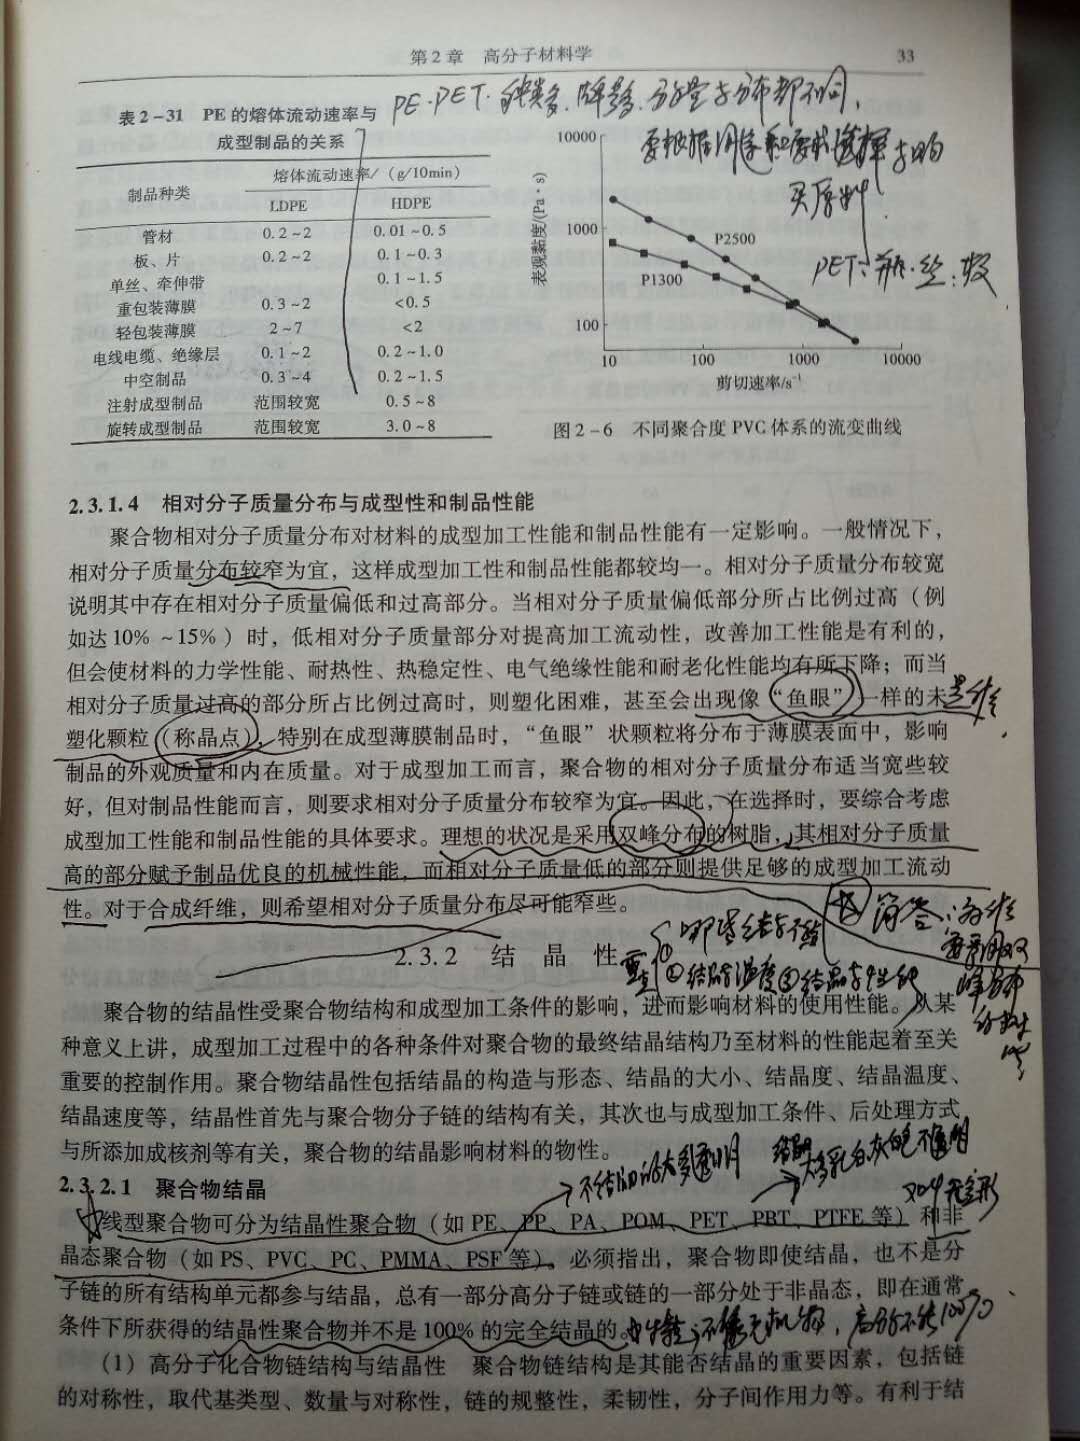 第2章 高分子材料学 33
表2-31 PE的熔体流动速率与
成型制品的关系
制品种类 熔体流动速率/(g/10min)
LDPE HDPE
管材 0.2~2 0.01~0.5
板、片 0.2~2 0.1~0.3
单丝、牵伸带 0.1~1.5
重包装薄膜 0.3~2 <0.5
轻包装薄膜 2~7 <2
电线电缆、绝缘层 0.1~2 0.2~1.0
中空制品 0.3~4 0.2~1.5
注射成型制品 范围较宽 0.5~8
旋转成型制品 范围较宽 3.0~8
PE·PET·种类多、牌号多、分子量与分布都不同,
要根据用途和要求选择与购
买原料.
PET:瓶·丝:
10000
1000
100
表观黏度/(Pa·s)
P2500
P1300
10 100 1000 10000
剪切速率/s⁻¹
图2-6 不同聚合度PVC体系的流变曲线
2.3.1.4 相对分子质量分布与成型性和制品性能
聚合物相对分子质量分布对材料的成型加工性能和制品性能有一定影响。一般情况下,
相对分子质量分布较窄为宜,这样成型加工性和制品性能都较均一。相对分子质量分布较宽
说明其中存在相对分子质量偏低和过高部分。当相对分子质量偏低部分所占比例过高(例
如达10%~15%)时,低相对分子质量部分对提高加工流动性,改善加工性能是有利的,
但会使材料的力学性能、耐热性、热稳定性、电气绝缘性能和耐老化性能均有所下降;而当
相对分子质量过高的部分所占比例过高时,则塑化困难,甚至会出现像“鱼眼”一样的未
是什么
塑化颗粒(称晶点),特别在成型薄膜制品时,“鱼眼”状颗粒将分布于薄膜表面中,影响
制品的外观质量和内在质量。对于成型加工而言,聚合物的相对分子质量分布适当宽些较
好,但对制品性能而言,则要求相对分子质量分布较窄为宜。因此,在选择时,要综合考虑
成型加工性能和制品性能的具体要求。理想的状况是采用双峰分布的树脂,其相对分子质量
高的部分赋予制品优良的机械性能,而相对分子质量低的部分则提供足够的成型加工流动
性。对于合成纤维,则希望相对分子质量分布尽可能窄些。
简答:为什么
需要用双
峰分布
的树脂
2.3.2 结晶性
重点 ①哪些结晶不结晶
②结晶与温度③结晶与性能
聚合物的结晶性受聚合物结构和成型加工条件的影响,进而影响材料的使用性能。从某
种意义上讲,成型加工过程中的各种条件对聚合物的最终结晶结构乃至材料的性能起着至关
重要的控制作用。聚合物结晶性包括结晶的构造与形态、结晶的大小、结晶度、结晶温度、
结晶速度等,结晶性首先与聚合物分子链的结构有关,其次也与成型加工条件、后处理方式
与所添加成核剂等有关,聚合物的结晶影响材料的物性。
不结晶的大多透明
结晶大多乳白灰白色不透明
又叫无定形
2.3.2.1 聚合物结晶
线型聚合物可分为结晶性聚合物(如PE、PP、PA、POM、PET、PBT、PTFE等)和非
晶态聚合物(如PS、PVC、PC、PMMA、PSF等)。必须指出,聚合物即使结晶,也不是分
子链的所有结构单元都参与结晶,总有一部分高分子链或链的一部分处于非晶态,即在通常
条件下所获得的结晶性聚合物并不是100%的完全结晶的。
不像无机物,高分子不能100%
(1)高分子化合物链结构与结晶性 聚合物链结构是其能否结晶的重要因素,包括链
的对称性,取代基类型、数量与对称性,链的规整性,柔韧性,分子间作用力等。有利于结